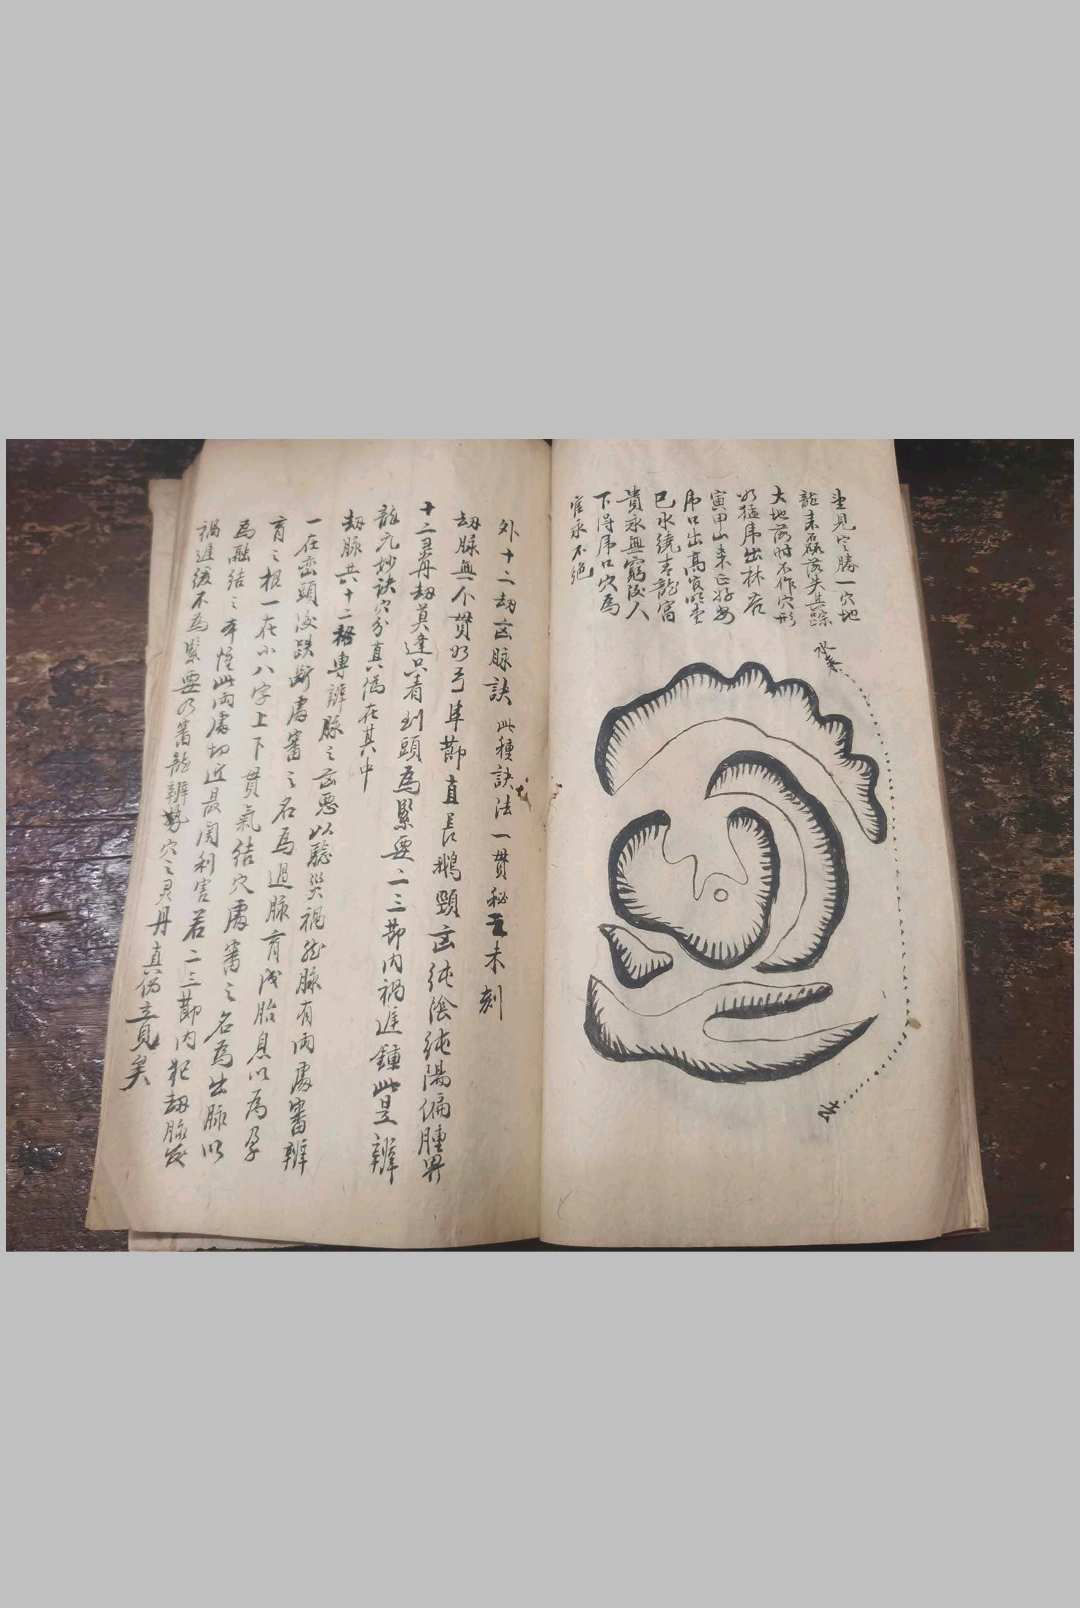 坐見它勝一穴地
龍來磊落失其踪
大地落時不作穴形
如猛虎出林岩
寅甲山來正好安
虎口出高官堂
巳水繞青龍富
貴永無窮後人
下得虎口穴為
官永不絕
水來
去
外十二劫凶脉訣 此種訣法一貫秘 未刻
劫脉無个貫如弓 節直長鵝頸凶純陰純陽偏腫
十二灵丹劫莫逢只看到頭為緊要二三節內禍遲鍾此是辨
龍元妙訣穴分真偽在其中
劫脉共十二格專辨脉之凶惡以驗災禍龍脉有兩處審辨
一在巒頭後跌斷處審之名為過脉育成胎息以為孕
育之根一在小八字上下貫氣結穴處審之名為出脉以
為融結之本惟此兩處切近最関利害若二三節內犯劫脉發
禍遲緩不為緊要乃審龍辨 穴之灵丹真偽立見矣